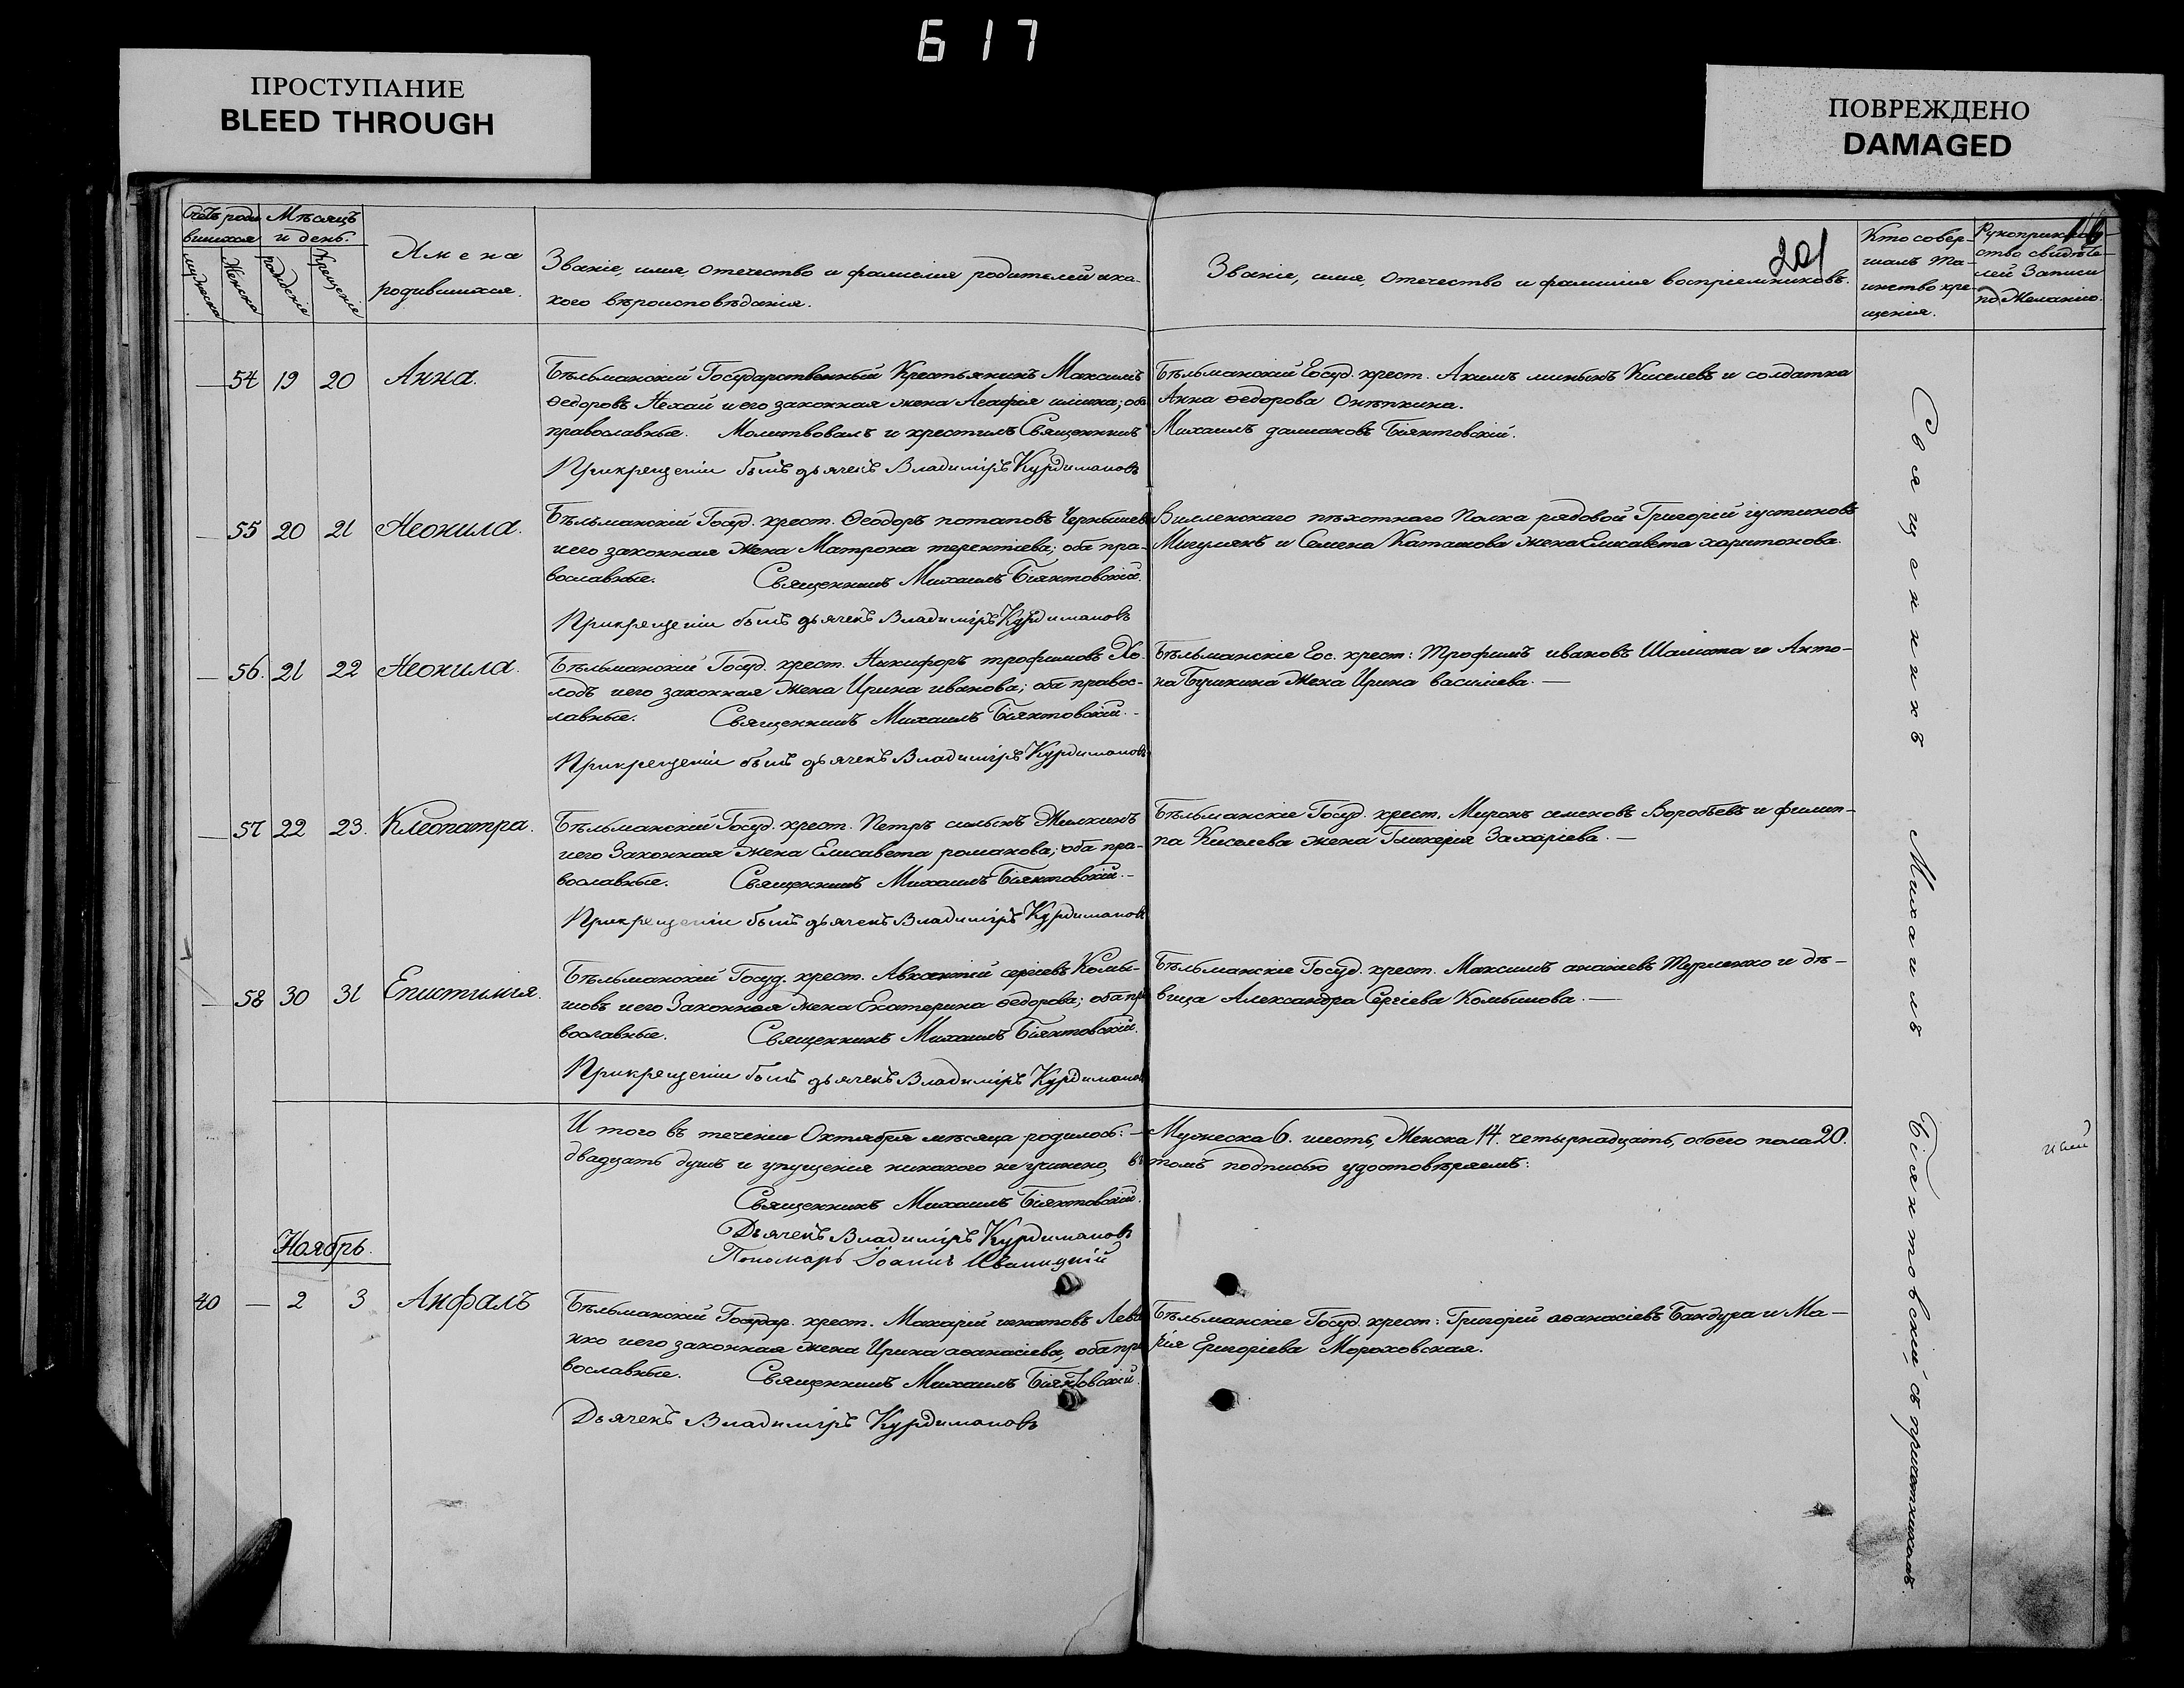 617
ПРОСТУПАНИЕ
BLEED THROUGH
ПОВРЕЖДЕНО
DAMAGED
Счетъ роди
вшихся
мужеска
женска
Мѣсяцъ
и день.
рожденія
крещенія
Имена
родившихся.
Званіе, имя, отечество и фамилія родителей и ка-
кого вѣроисповѣданія.
201
Званіе, имя, отечество и фамилія воспріемниковъ.
Кто совер-
шалъ та-
инство кре-
щенія.
Рукоприклад-
ство свидѣте-
лей записи
по желанію.
— 54 19 20 Анна.
Бѣльманскій Государственный Крестьянинъ Максимъ
Ѳедоровъ Нехай и его законная жена Агафія ильина; оба
православные. Молитвовалъ и крестилъ Священникъ
Михаилъ Біянтовскій.
Прикрещеніи былъ дьячекъ Владиміръ Курдимановъ
Бѣльманскій Госуд. крест. Акимъ миныкъ Киселевъ и солдатка
Анна Ѳедорова
— 55 20 21 Неонила.
Бѣльманскій Госуд. крест. Ѳеодоръ потаповъ Чернышевъ
и его законная жена Матрона терентіева; оба пра-
вославные. Священникъ Михаилъ Біянтовскій.
Прикрещеніи былъ дьячекъ Владиміръ Курдимановъ
Виленскаго пѣхотнаго Полка рядовой Григорій густиновъ
и Семена Каташова жена Елисавета харитонова.
— 56. 21 22 Неонила.
Бѣльманскій Госуд. крест. Никифоръ трофимовъ Хо-
лодъ и его законная жена Ирина иванова; оба правос-
лавные. Священникъ Михаилъ Біянтовскій.-
Прикрещеніи былъ дьячекъ Владиміръ Курдимановъ
Бѣльманскіе Гос. крест: Трофимъ ивановъ Шамота и Анто-
на Бушкина жена Ирина василіева.—
— 57 22 23. Клеопатра.
Бѣльманскій Госуд. крест. Петръ силынъ Жилкинъ
и его Законная жена Елисавета романова; оба пра-
вославные. Священникъ Михаилъ Біянтовскій.-
Прикрещеніи былъ дьячекъ Владиміръ Курдимановъ
Бѣльманскіе Госуд. крест. Миронъ семеновъ Воробьевъ и филип-
па Киселева жена Гликерія Захаріева.—
— 58 30 31 Епистимія.
Бѣльманскій Госуд. крест. Авксентій сергіевъ Комы-
шовъ и его Законная жена Екатерина Ѳедорова; оба пра
вославные. Священникъ Михаилъ Біянтовскій.
Прикрещеніи былъ дьячекъ Владиміръ Курдимановъ
Бѣльманскіе Госуд. крест. Максимъ ананіевъ Турленко и дѣ-
вица Александра Сергіева Комышова.—
И того въ теченіи Октября мѣсяца родилось:— Мужеска 6. шесть, Женска 14. четырнадцать, обоего пола 20.
двадцать душъ и упущенія никакого не учинено, въ томъ подписью удостовѣряемъ:
Священникъ Михаилъ Біянтовскій.
Дьячекъ Владиміръ Курдимановъ
Пономарь Іоаннъ Иваницкій
Ноябрь.
40 — 2 3 Анфалъ
Бѣльманскій Государ. крест. Макарій игнатовъ Левче
нко и его законная жена Ирина аѳанасіева, оба пра
вославные. Священникъ Михаилъ Біянтовскій.
Дьячекъ Владиміръ Курдимановъ
Бѣльманскіе Госуд. крест: Григорій аѳанасіевъ Бандура и Ма-
рія Григоріева Мороховская.
Священникъ Михаилъ Біянтовскій, съ причетникомъ.